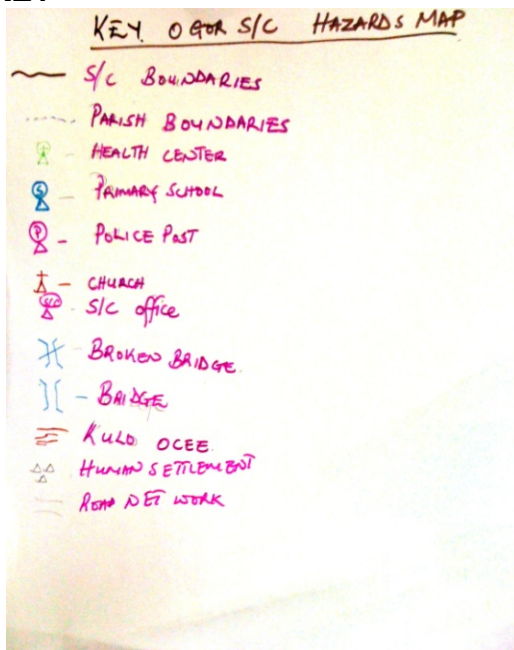 KEY OGOR S/C HAZARDS MAP
S/C BOUNDARIES
PARISH BOUNDARIES
- HEALTH CENTER
S - PRIMARY SCHOOL
P - POLICE POST
- CHURCH
S/C S/C office
BROKEN BRIDGE
- BRIDGE
KULO OCEE
HUMAN SETTLEMENT
ROAD NET WORK